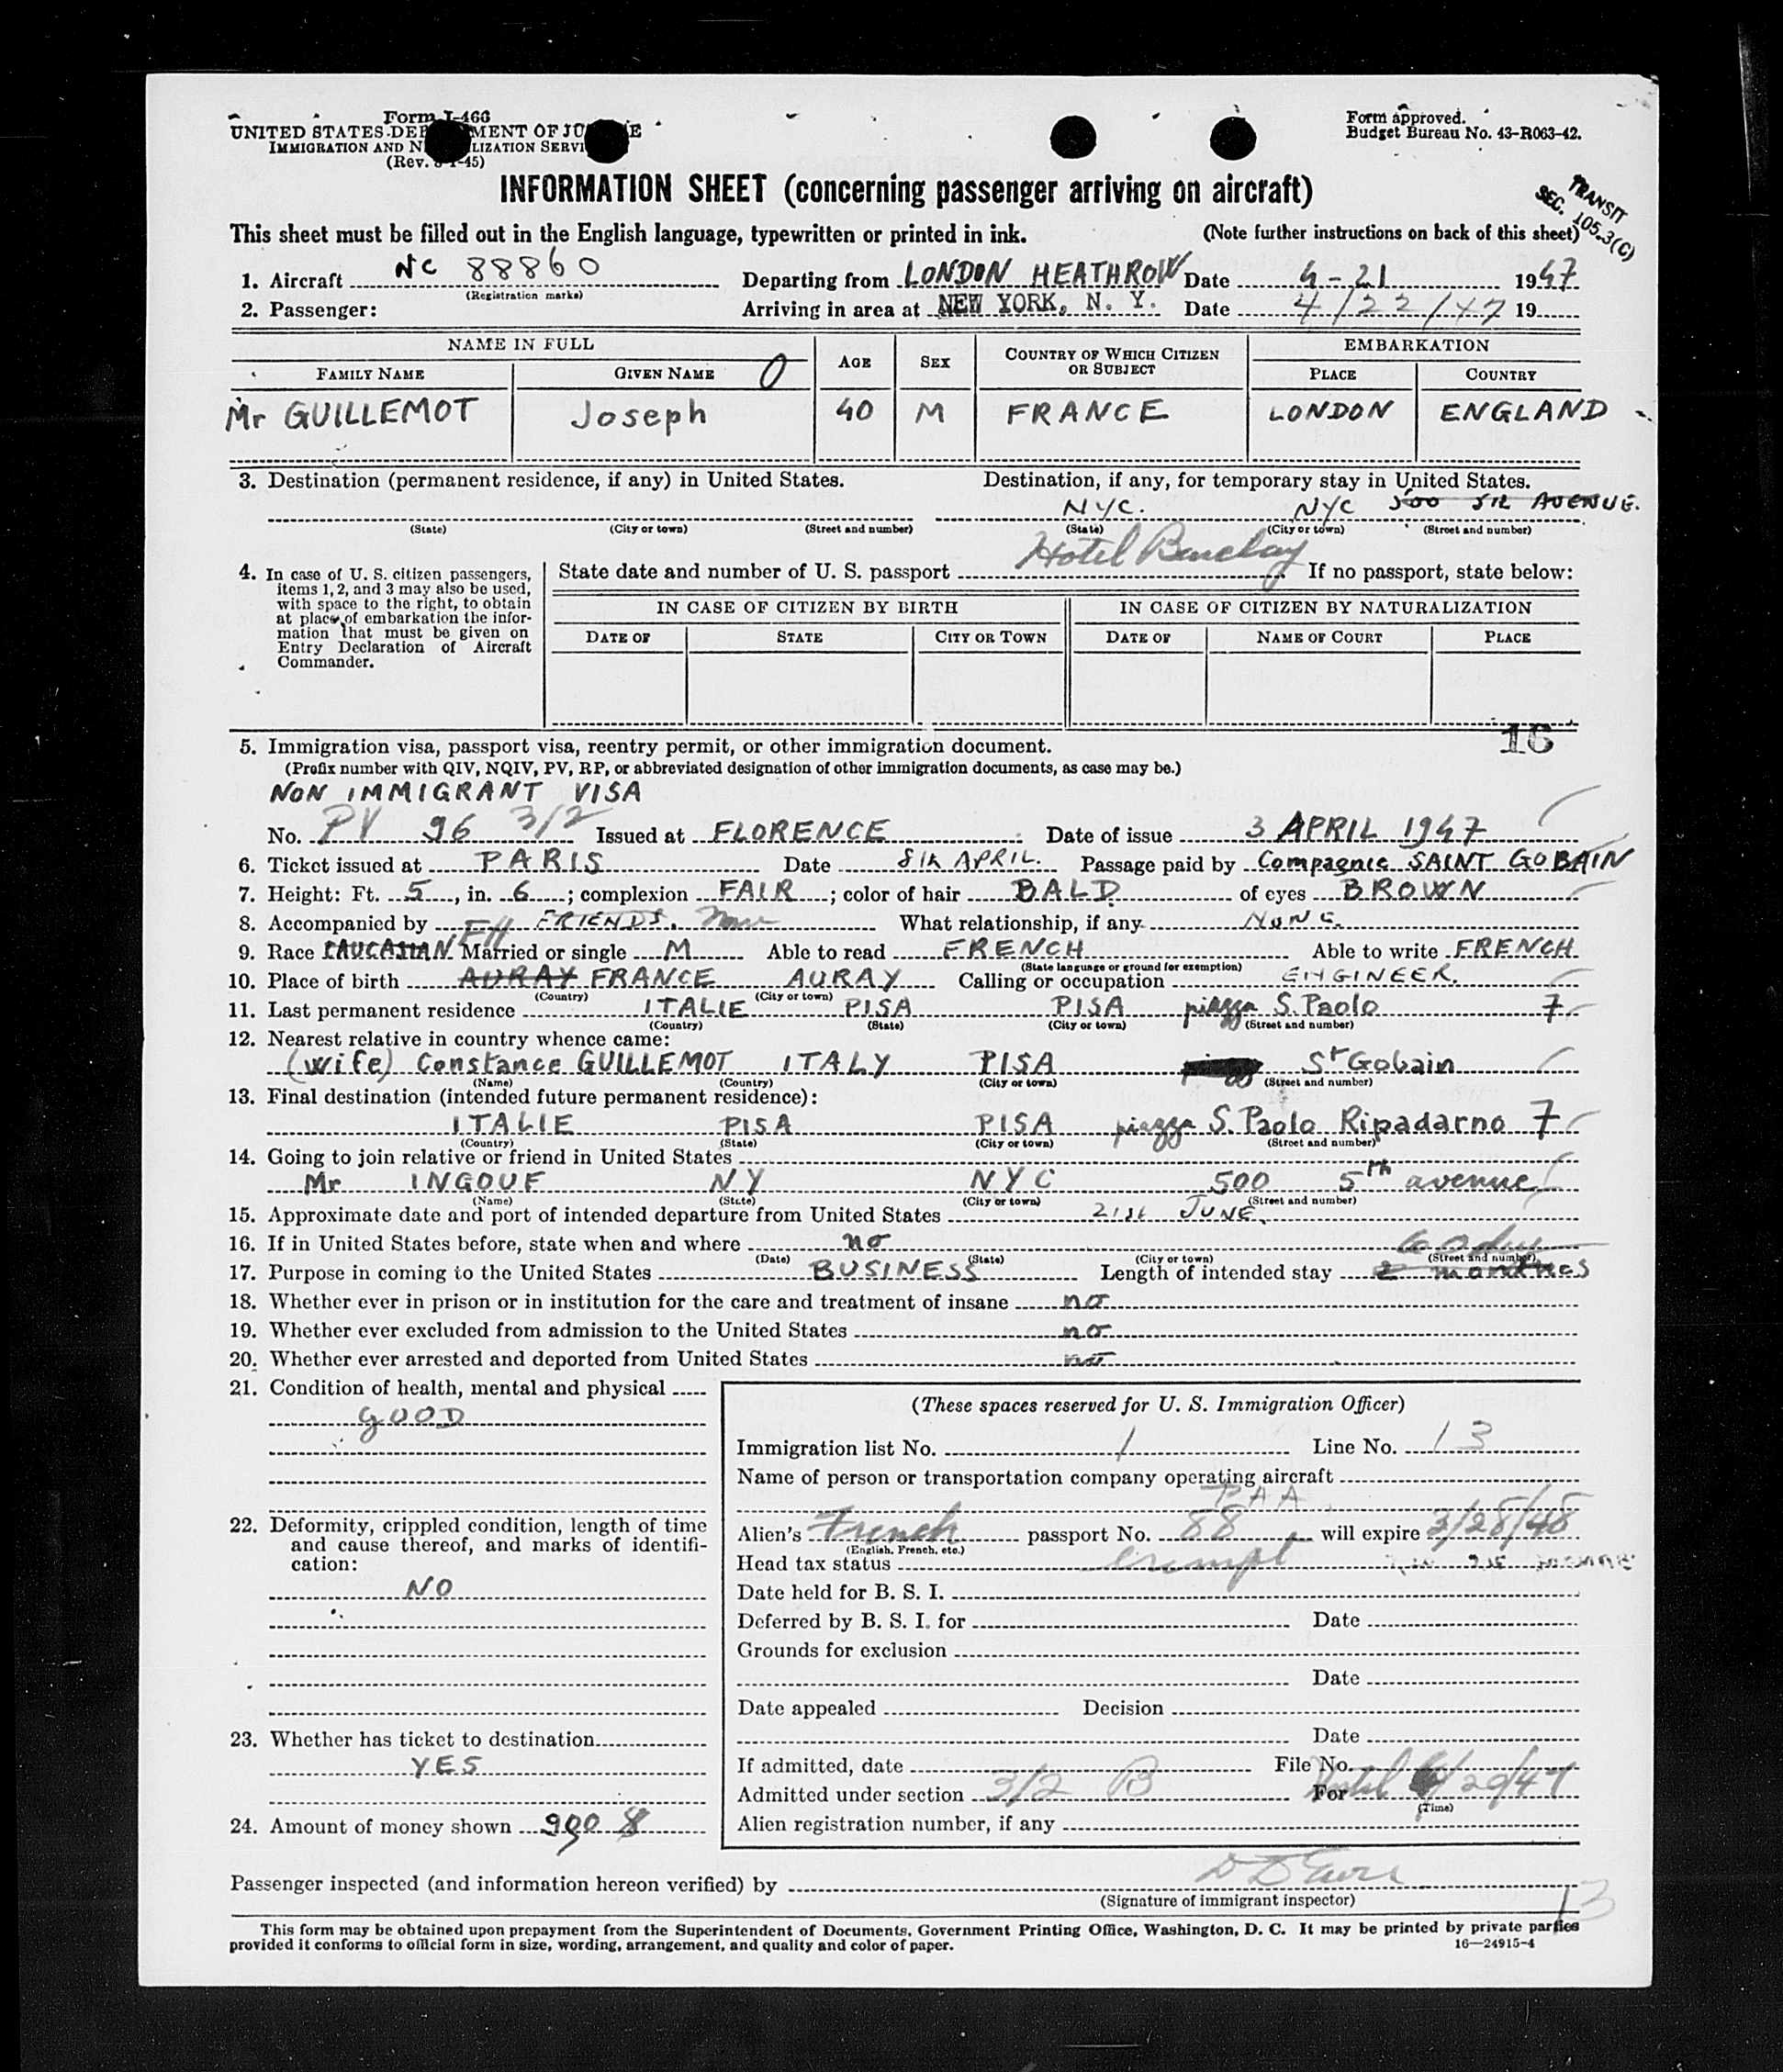 Form I-466
UNITED STATES DEP MENT OF JU E
IMMIGRATION AND N LIZATION SERVI
(Rev. -45)
Form approved.
Budget Bureau No. 43-R063-42.
TRANSIT
SEC. 105.3(C)
INFORMATION SHEET (concerning passenger arriving on aircraft)
This sheet must be filled out in the English language, typewritten or printed in ink. (Note further instructions on back of this sheet)
1. Aircraft NC 88860 Departing from LONDON HEATHROW Date 4-21 1947
(Registration marks)
2. Passenger: Arriving in area at NEW YORK, N. Y. Date 4/22/47 19
NAME IN FULL AGE SEX COUNTRY OF WHICH CITIZEN OR SUBJECT EMBARKATION
FAMILY NAME GIVEN NAME O PLACE COUNTRY
Mr GUILLEMOT Joseph 40 M FRANCE LONDON ENGLAND
3. Destination (permanent residence, if any) in United States. Destination, if any, for temporary stay in United States.
NYC. NYC 500 5th AVENUE.
(State) (City or town) (Street and number) (State) (City or town) (Street and number)
Hotel Barclay
4. In case of U. S. citizen passengers, items 1, 2, and 3 may also be used, with space to the right, to obtain at place of embarkation the information that must be given on Entry Declaration of Aircraft Commander.
State date and number of U. S. passport If no passport, state below:
IN CASE OF CITIZEN BY BIRTH IN CASE OF CITIZEN BY NATURALIZATION
DATE OF STATE CITY OR TOWN DATE OF NAME OF COURT PLACE
16
5. Immigration visa, passport visa, reentry permit, or other immigration document.
(Prefix number with QIV, NQIV, PV, RP, or abbreviated designation of other immigration documents, as case may be.)
NON IMMIGRANT VISA
No. PV 96 3/2 Issued at FLORENCE Date of issue 3 APRIL 1947
6. Ticket issued at PARIS Date 8th APRIL. Passage paid by Compagnie SAINT GOBAIN
7. Height: Ft. 5, in. 6; complexion FAIR; color of hair BALD. of eyes BROWN
8. Accompanied by FRIENDS. None What relationship, if any NONE.
9. Race CAUCASIAN FH Married or single M Able to read FRENCH Able to write FRENCH
(State language or ground for exemption)
10. Place of birth AURAY FRANCE AURAY Calling or occupation ENGINEER.
(Country) (City or town)
11. Last permanent residence ITALIE PISA PISA piazza S. Paolo 7
(Country) (State) (City or town) (Street and number)
12. Nearest relative in country whence came:
(wife) Constance GUILLEMOT ITALY PISA St Gobain
(Name) (Country) (City or town) (Street and number)
13. Final destination (intended future permanent residence):
ITALIE PISA PISA piazza S. Paolo Ripadarno 7
(Country) (State) (City or town) (Street and number)
14. Going to join relative or friend in United States
Mr INGOUF NY NYC 500 5th avenue
(Name) (State) (City or town) (Street and number)
15. Approximate date and port of intended departure from United States 21st JUNE.
16. If in United States before, state when and where no
(Date) (State) (City or town) (Street and number)
60 days
17. Purpose in coming to the United States BUSINESS Length of intended stay 2 months
18. Whether ever in prison or in institution for the care and treatment of insane no
19. Whether ever excluded from admission to the United States no
20. Whether ever arrested and deported from United States no
21. Condition of health, mental and physical
GOOD
22. Deformity, crippled condition, length of time and cause thereof, and marks of identification:
NO
23. Whether has ticket to destination
YES
24. Amount of money shown 900 $
(These spaces reserved for U. S. Immigration Officer)
Immigration list No. 1 Line No. 13
Name of person or transportation company operating aircraft
PAA
Alien's French passport No. 88, will expire 3/28/48
(English, French, etc.)
Head tax status exempt
Date held for B. S. I.
Deferred by B. S. I. for Date
Grounds for exclusion
Date
Date appealed Decision
Date
If admitted, date File No.
Admitted under section 3/2 B For until 6/20/47
(Time)
Alien registration number, if any
Passenger inspected (and information hereon verified) by
(Signature of immigrant inspector)
13
This form may be obtained upon prepayment from the Superintendent of Documents, Government Printing Office, Washington, D. C. It may be printed by private parties
provided it conforms to official form in size, wording, arrangement, and quality and color of paper. 16—24915-4